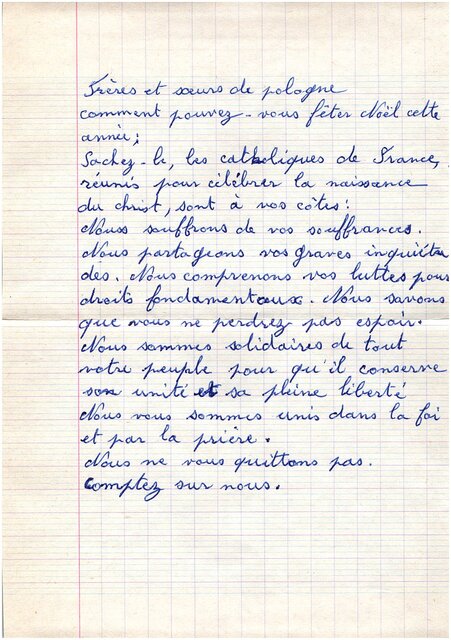 Frères et sœurs de pologne
comment pouvez-vous fêter Noël cette
année;
Sachez-le, les catholiques de France,
réunis pour célébrer la naissance
du christ, sont à vos côtés!
Nous souffrons de vos souffrances.
Nous partageons vos graves inquiétu
des. Nous comprenons vos luttes pour
droits fondamentaux. Nous savons
que vous ne perdrez pas espoir.
Nous sommes solidaires de tout
votre peuple pour qu'il conserve
son unité et sa pleine liberté
Nous vous sommes unis dans la foi
et par la prière.
Nous ne vous quittons pas.
Comptez sur nous.